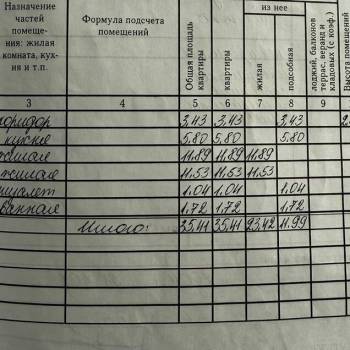 Назначение частей помеще- ния: жилая комната, кух- ня и т.п. | Формула подсчета помещений | Общая площадь квартиры | квартиры | из нее | жилая | подсобная | лоджий, балконов террас, веранд и кладовых (с коэф.) | Высота помещений
3 4 5 6 7 8 9
коридор 3,43 3,43 3,43
кухня 5.80 5,80 5.80
жилая 11.89 11.89 11.89
жилая 11.53 11.53 11.53
туалет 1.04 1.04 1.04
ванная 1.72 1.72 1.72
Итого: 35,41 35,41 23,42 11.99